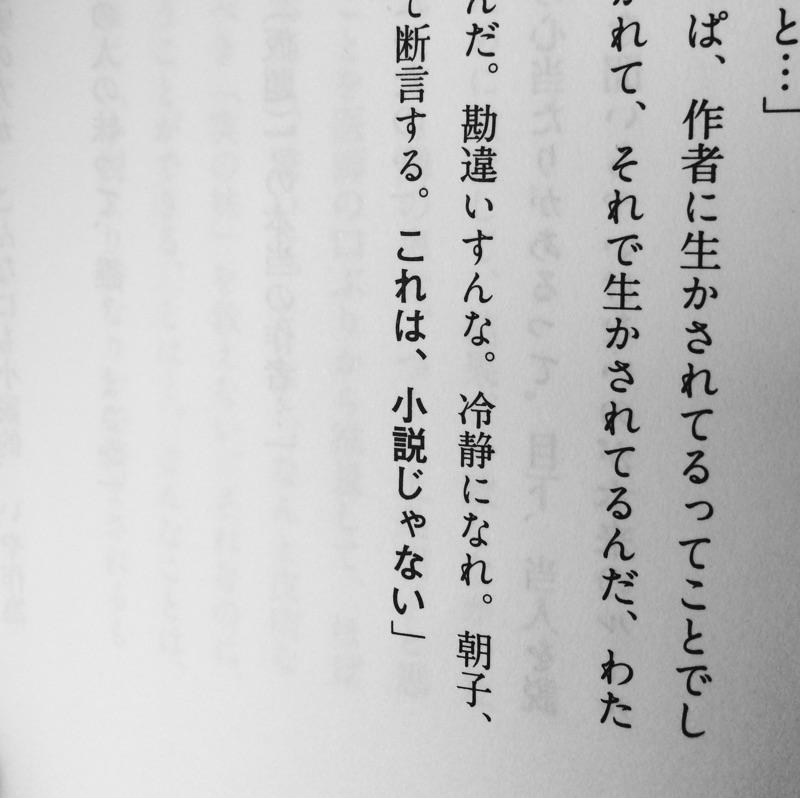 と…」
ぱ、作者に生かされてるってことでし
かれて、それで生かされてるんだ、わた
んだ。勘違いすんな。冷静になれ。朝子、
て断言する。これは、小説じゃない」